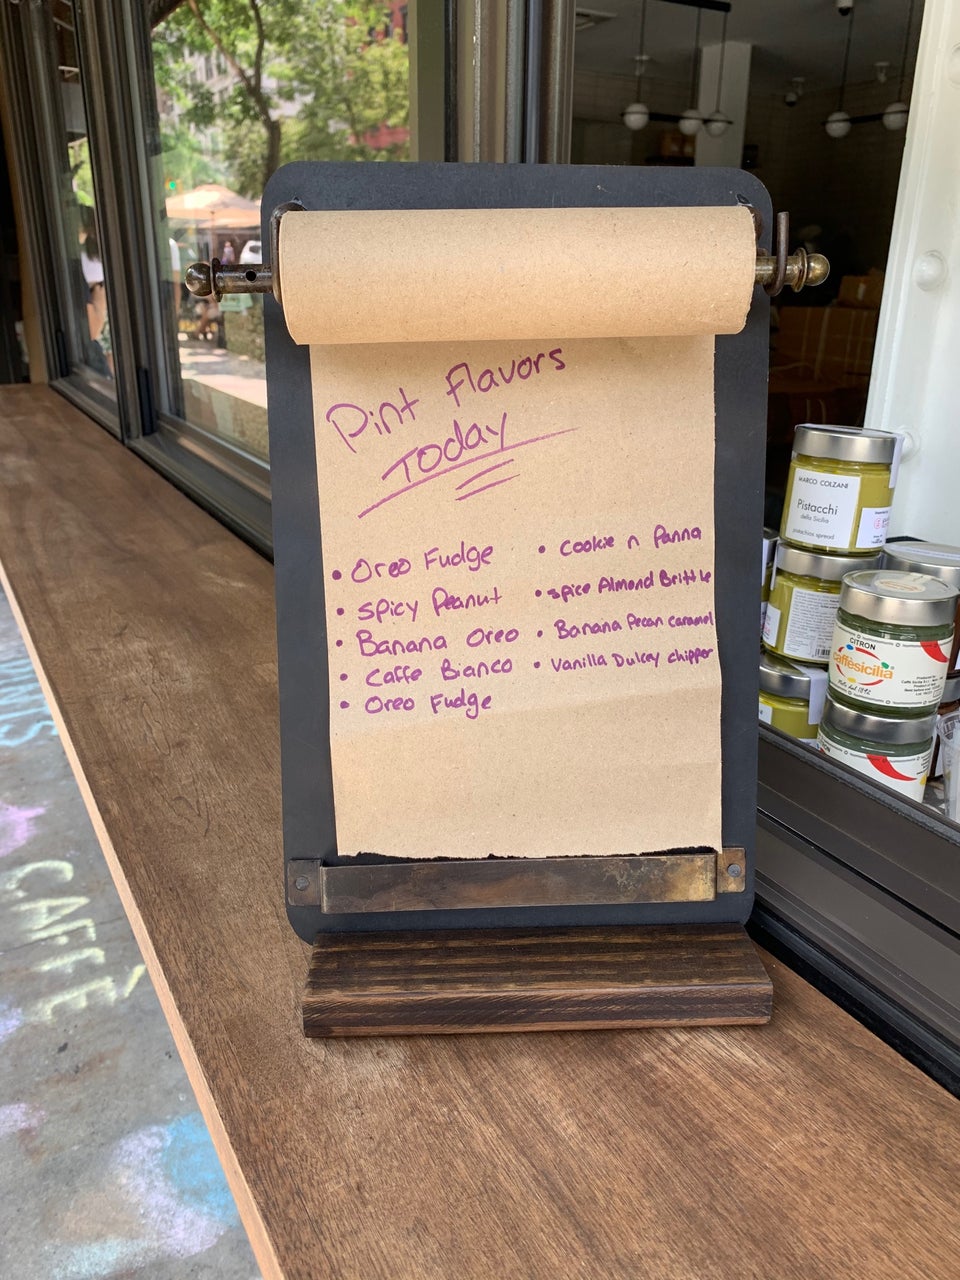 Pint Flavors
Today
• Oreo Fudge
• Spicy Peanut
• Banana Oreo
• Caffe Bianco
• Oreo Fudge
• Cookie n Panna
• Spice Almond Brittle
• Banana Pecan Caramel
• Vanilla Dulcey Chipper
MARCO COLZANI
Pistacchi
della Sicilia
pistachios spread
CITRON
Caffèsicilia
CAFFE